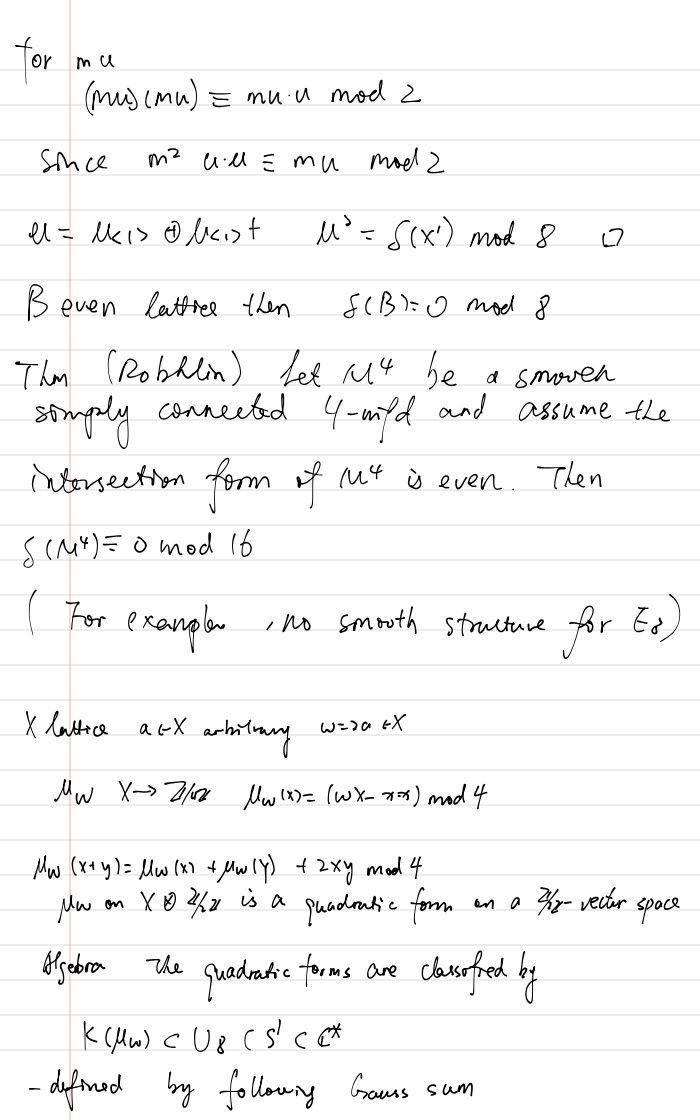 for mu
(mu)(mu) ≡ mu·u mod 2
since m² u·u ≡ mu mod 2
u = u<1> ⊕ u<1>⊥ u² = δ(X') mod 8 □
B even lattice then δ(B)=0 mod 8
Thm (Rokhlin) Let M⁴ be a smooth
simply connected 4-mfd and assume the
intersection form of M⁴ is even. Then
δ(M⁴) ≡ 0 mod 16
( For example, no smooth structure for E8)
X lattice a∈X arbitrary w=2a∈X
μw X→Z/4Z μw(x)=(wx-x·x) mod 4
μw(x+y)=μw(x)+μw(y)+2xy mod 4
μw on X⊗Z/2Z is a quadratic form on a Z/2Z-vector space
Algebra The quadratic forms are classified by
K(μw) ⊂ U8 ⊂ S¹ ⊂ C*
- defined by following Gauss sum